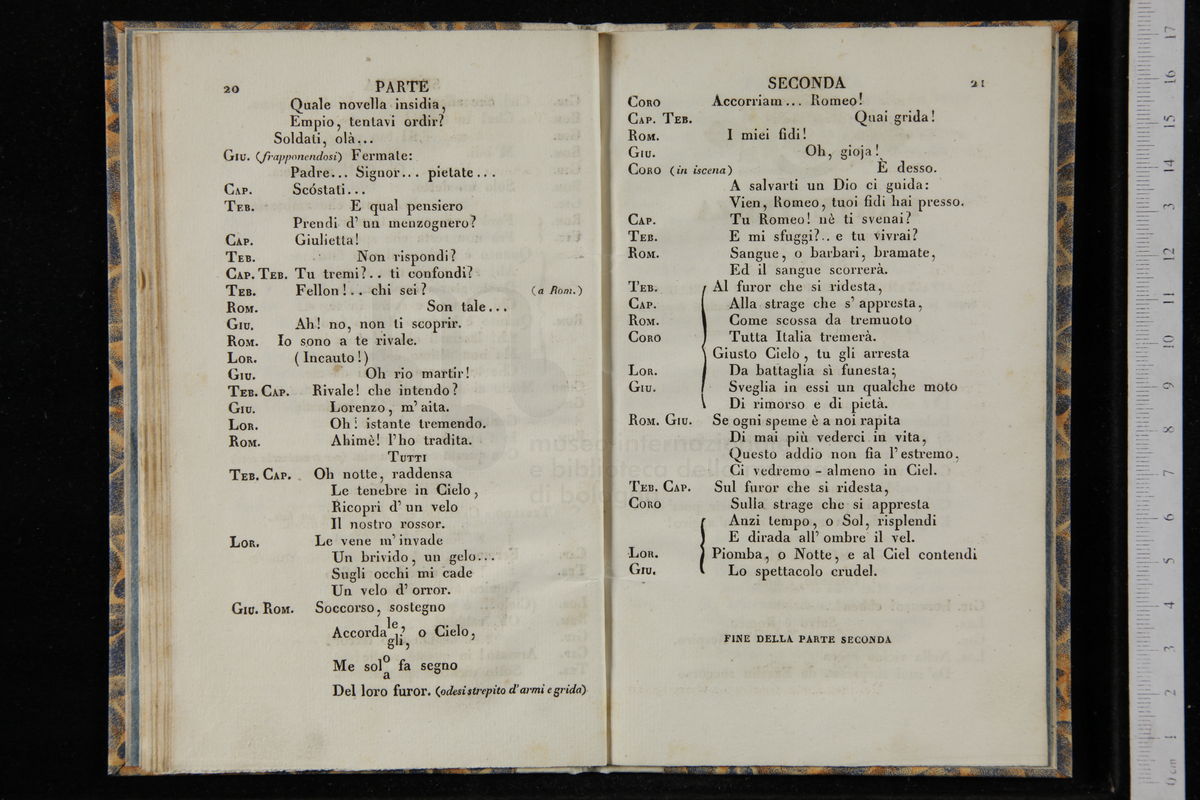 20 PARTE
Quale novella insidia,
Empio, tentavi ordir?
Soldati, olà...
GIU. (frapponendosi) Fermate:
Padre... Signor... pietate...
CAP. Scóstati...
TEB. E qual pensiero
Prendi d'un menzognero?
CAP. Giulietta!
TEB. Non rispondi?
CAP. TEB. Tu tremi?.. ti confondi?
TEB. Fellon!.. chi sei? (a Rom.)
ROM. Son tale...
GIU. Ah! no, non ti scoprir.
ROM. Io sono a te rivale.
LOR. (Incauto!)
GIU. Oh rio martir!
TEB. CAP. Rivale! che intendo?
GIU. Lorenzo, m'aita.
LOR. Oh! istante tremendo.
ROM. Ahimè! l'ho tradita.
TUTTI
TEB. CAP. Oh notte, raddensa
Le tenebre in Cielo,
Ricopri d'un velo
Il nostro rossor.
LOR. Le vene m'invade
Un brivido, un gelo...
Sugli occhi mi cade
Un velo d'orror.
GIU. ROM. Soccorso, sostegno
Accorda le, gli, o Cielo,
Me sol o a fa segno
Del loro furor. (odesi strepito d'armi e grida)
SECONDA 21
CORO Accorriam... Romeo!
CAP. TEB. Quai grida!
ROM. I miei fidi!
GIU. Oh, gioja!
CORO (in iscena) È desso.
A salvarti un Dio ci guida:
Vien, Romeo, tuoi fidi hai presso.
CAP. Tu Romeo! nè ti svenai?
TEB. E mi sfuggi?.. e tu vivrai?
ROM. Sangue, o barbari, bramate,
Ed il sangue scorrerà.
TEB. Al furor che si ridesta,
CAP. Alla strage che s'appresta,
ROM. Come scossa da tremuoto
CORO Tutta Italia tremerà.
Giusto Cielo, tu gli arresta
LOR. Da battaglia sì funesta;
GIU. Sveglia in essi un qualche moto
Di rimorso e di pietà.
ROM. GIU. Se ogni speme è a noi rapita
Di mai più vederci in vita,
Questo addio non fia l'estremo,
Ci vedremo - almeno in Ciel.
TEB. CAP. Sul furor che si ridesta,
CORO Sulla strage che si appresta
Anzi tempo, o Sol, risplendi
E dirada all'ombre il vel.
LOR. Piomba, o Notte, e al Ciel contendi
GIU. Lo spettacolo crudel.
FINE DELLA PARTE SECONDA